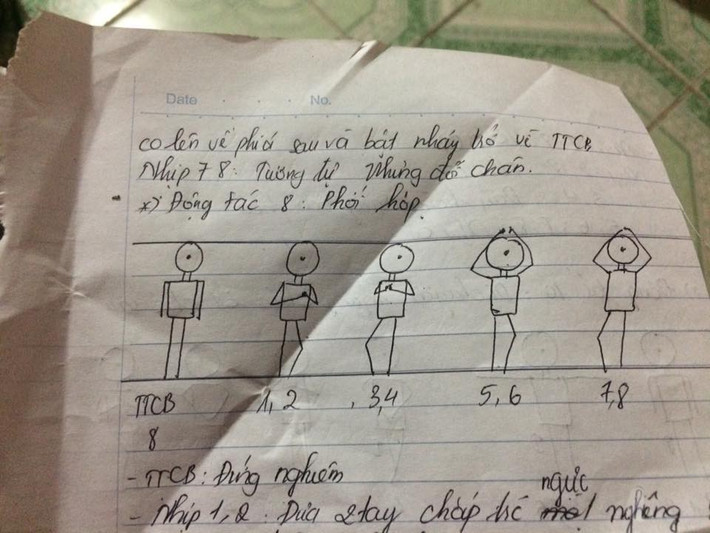 Date . . . No.
co lên về phía sau và bật nhảy trở về TTCB
Nhịp 7 8: Tương tự Nhưng đổi chân.
*) Động tác 8: Phối hợp
TTCB 1, 2 , 3,4 5, 6 7,8
8
- TTCB: Đứng nghiêm
ngực
- Nhịp 1, 2: Đưa 2 tay chắp trc nghiêng